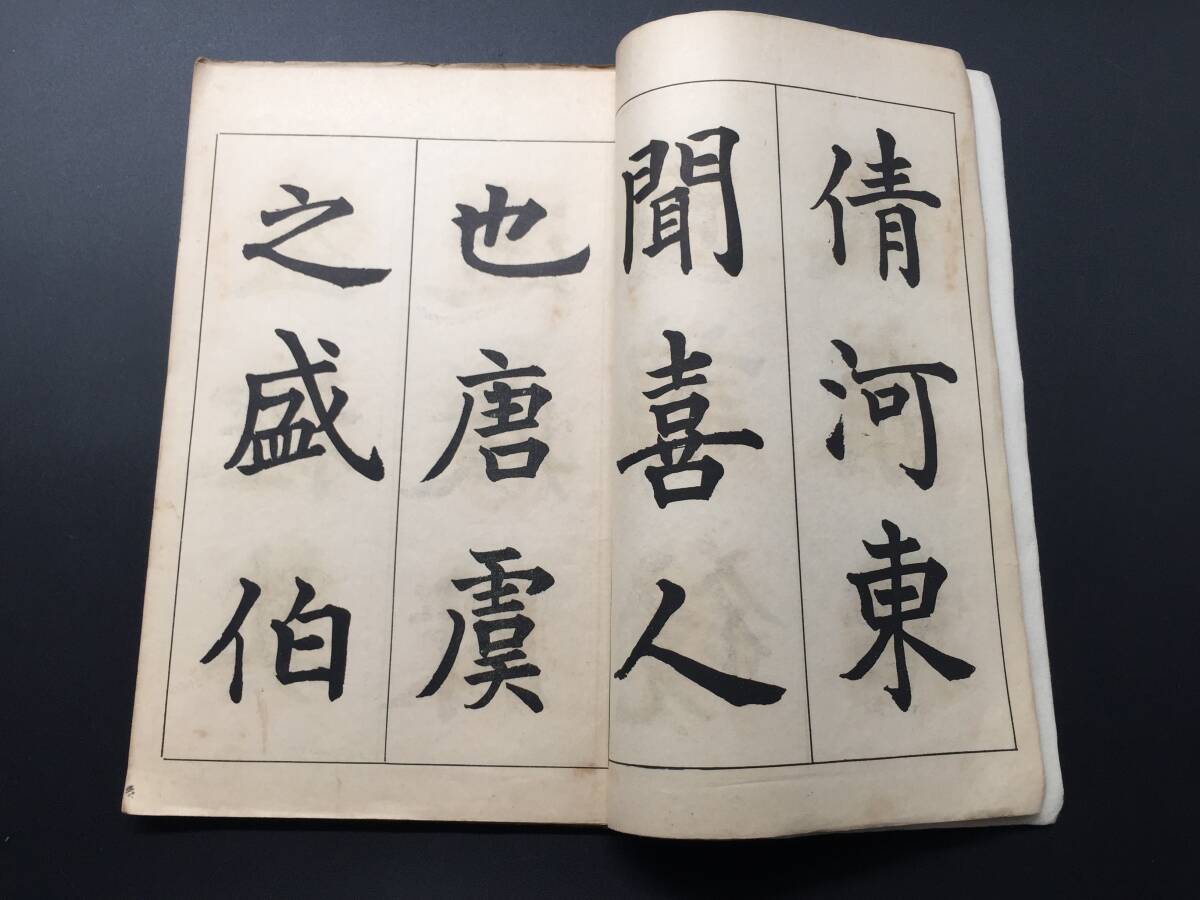 倩河東
聞喜人
也唐虞
之盛伯